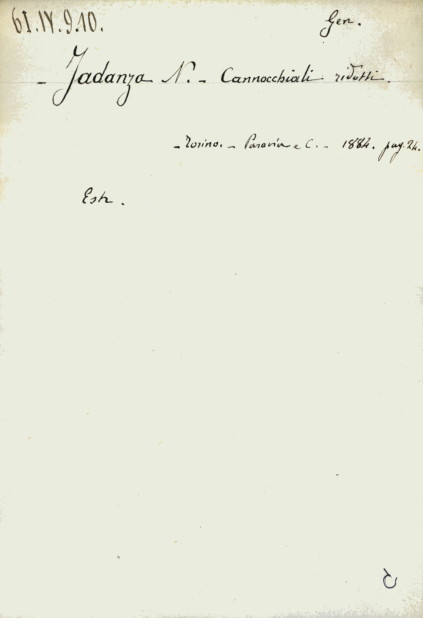 61.IV.9.10.
Gen.
- Jadanza N. - Cannocchiali ridotti.
- Torino. - Paravia e C. - 1884. pag. 24.
Estr.